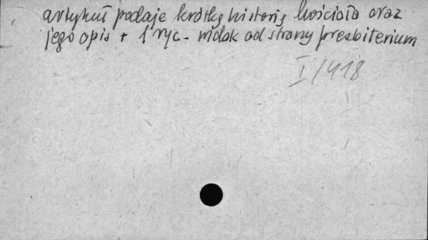 artykuł podaje krótką historię kościoła oraz
jego opis + 1 ryc. - widok od strony prezbiterium
I/418